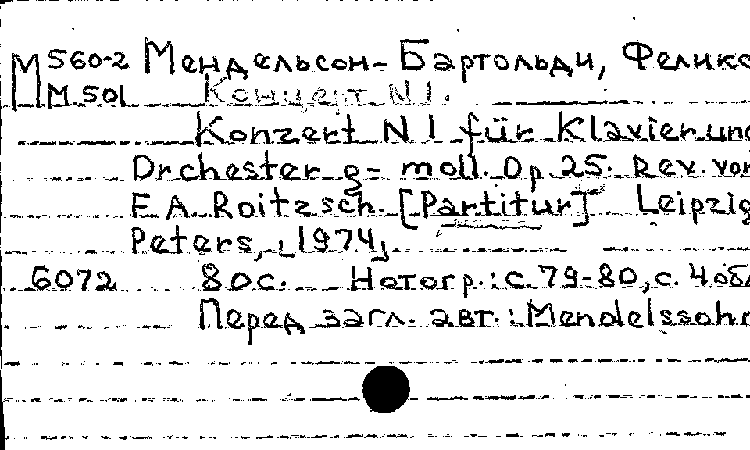 М 560-2 Мендельсон-Бартольди, Феликс
М 501 Концерт N 1.
Konzert N 1 für Klavier und
Orchester g-moll. Op. 25. Rev. von
F. A. Roitzsch. [Partitur] Leipzig
Peters, [1974]
6072 80 с. Нотогр.: с. 79-80, с. 4 обл
Перед загл. авт.: Mendelssohn